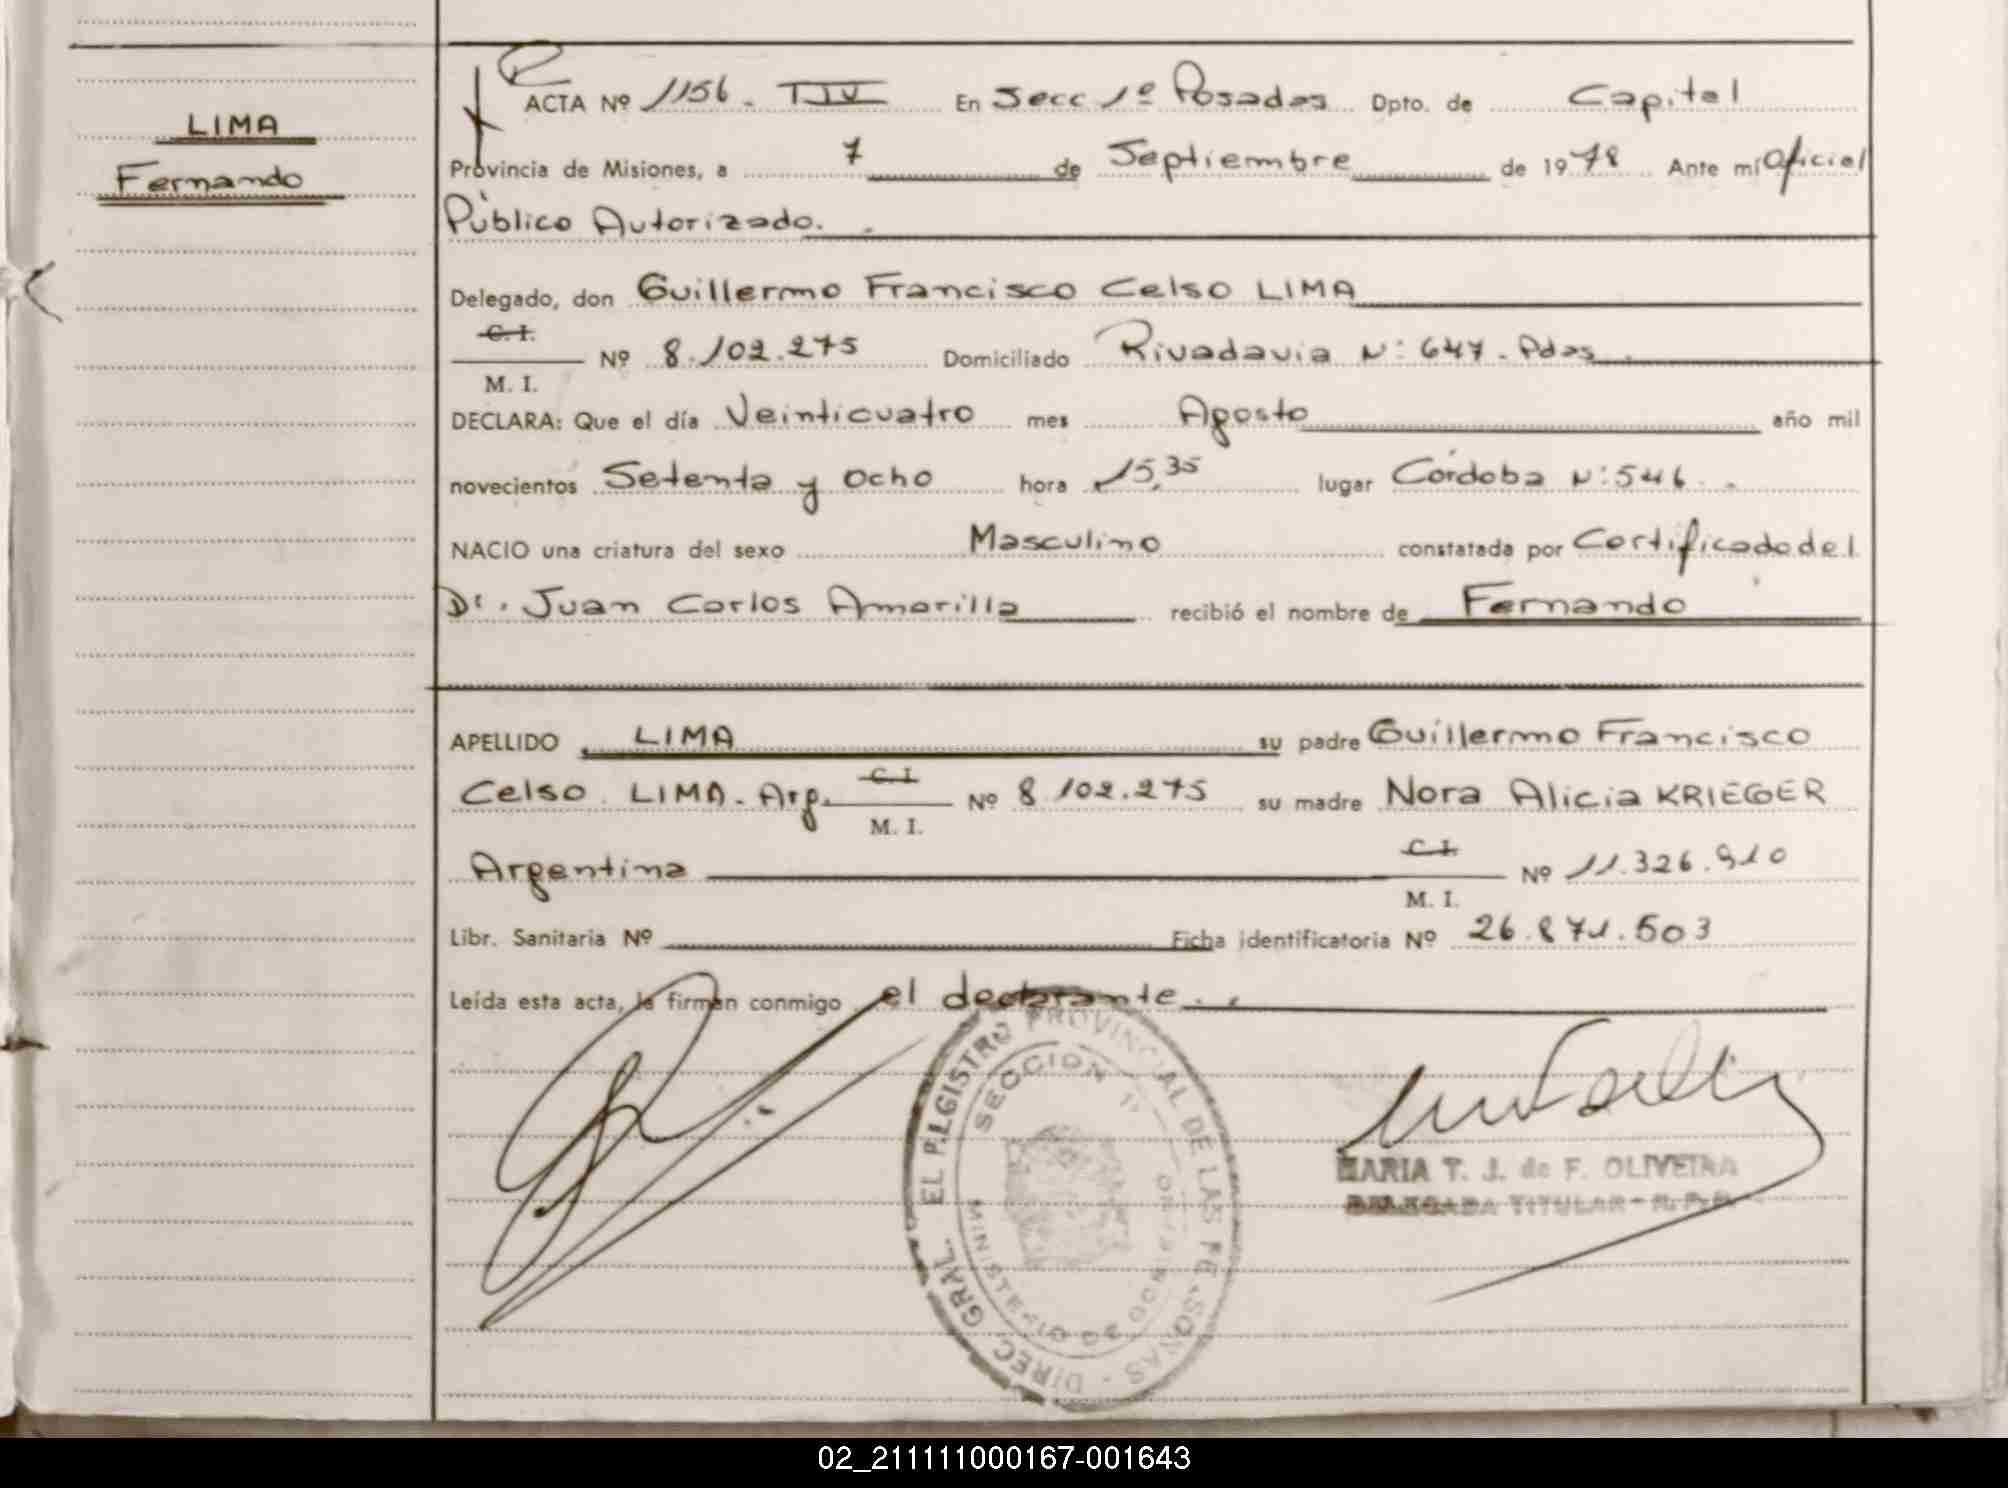 LIMA
Fernando
ACTA Nº 1156. TIV En Secc 1º Posadas Dpto. de Capital
Provincia de Misiones, a 7 de Septiembre de 1978 Ante mí Oficial
Público Autorizado.
Delegado, don Guillermo Francisco Celso LIMA
C. I.
Nº 8.102.275 Domiciliado Rivadavia Nº 647. Pdas.
M. I.
DECLARA: Que el día Veinticuatro mes Agosto año mil
novecientos Setenta y Ocho hora 15,35 lugar Córdoba Nº 546.
NACIO una criatura del sexo Masculino constatada por Certificado del
Dr. Juan Carlos Amarilla recibió el nombre de Fernando
APELLIDO LIMA su padre Guillermo Francisco
Celso LIMA. Arg. C. I. M. I. Nº 8.102.275 su madre Nora Alicia KRIEGER
Argentina C. I. M. I. Nº 11.326.910
Libr. Sanitaria Nº Ficha identificatoria Nº 26.871.503
Leída esta acta, la firman conmigo el declarante.
DIREC. GRAL. DEL REGISTRO PROVINCIAL DE LAS PERSONAS
SECCION 1ª
MINISTERIO DE GOBIERNO
MARIA T. J. de F. OLIVEIRA
DELEGADA TITULAR - R.P.P.
02_211111000167-001643